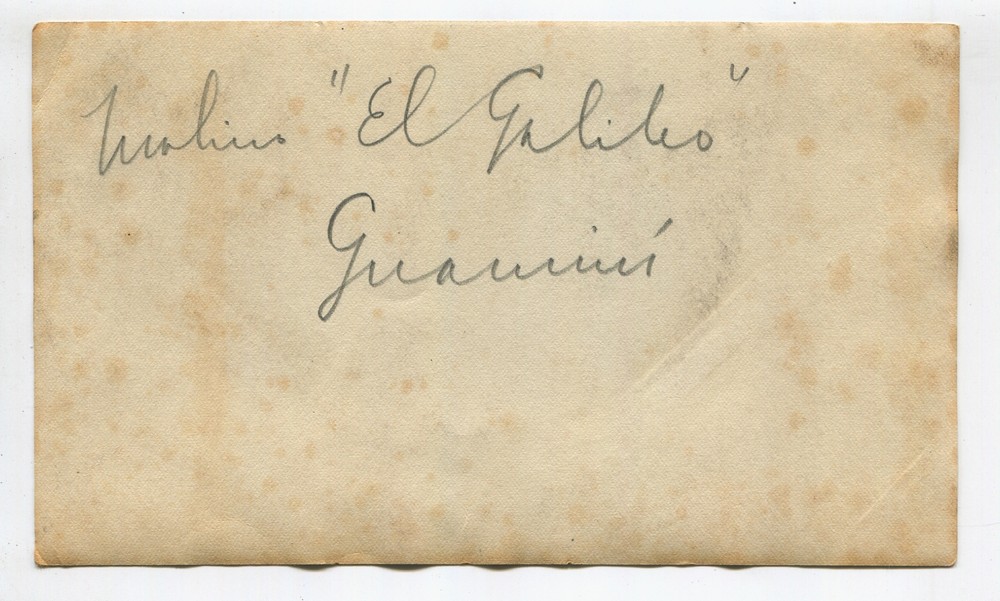 Molino "El Galileo"
Guaminí